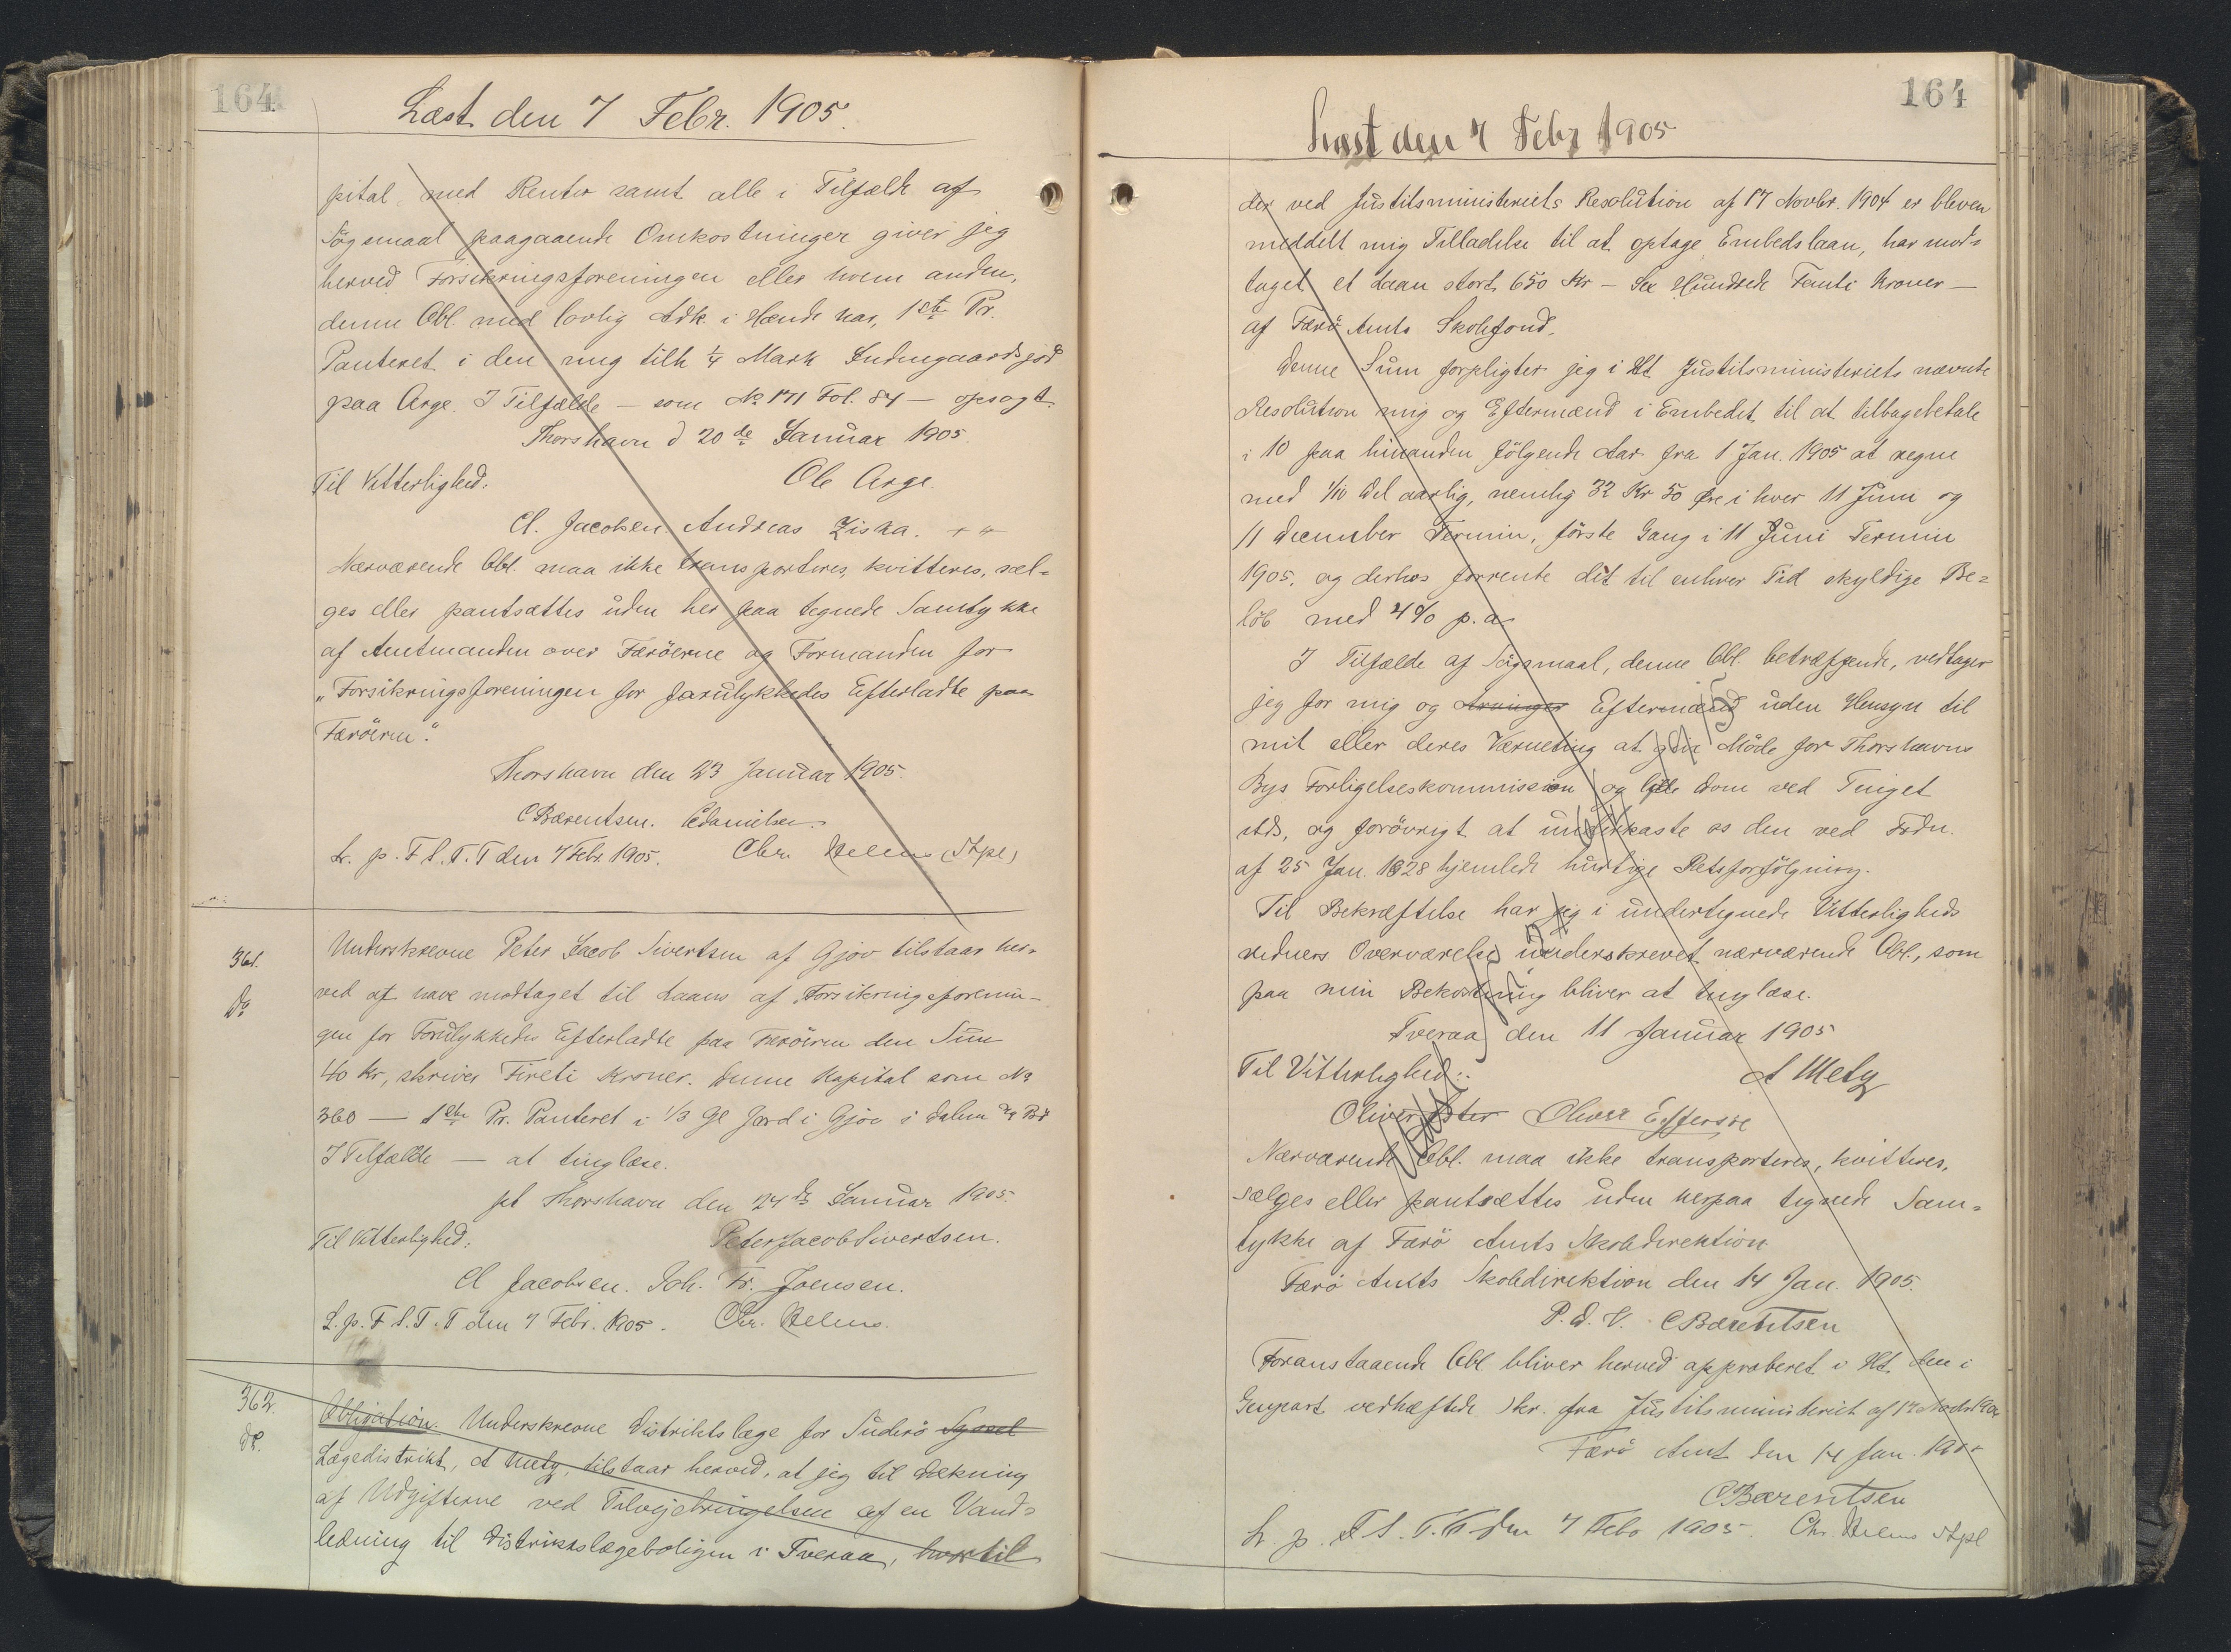 164
Læst den 7 Febr. 1905.
pital, med Renter samt alle i Tilfælde af
Søgsmaal paagaaende Omkostninger giver jeg
herved Forsikringsforeningen eller hvem anden,
denne Obl. med lovlig Adk. i Hænde har, 1ste Pr.
Panteret i den mig tilh. 1/4 Mark Indmgaardsjord
paa Arge. I Tilfælde — som No 171 Fol. 84 — opsagt.
Thorshavn d 20de Januar 1905.
Til Vitterlighed:
Ole Arge.
Cl. Jacobsen. Andreas Ziska.
Nærværende Obl. maa ikke transporteres, kvitteres, sæl-
ges eller pantsættes uden her paa tegnede Samtykke
af Amtmanden over Færöerne og Formanden for
"Forsikringsforeningen for Forulykkedes Efterladte paa
Færöerne."
Thorshavn den 23 Januar 1905.
CBærentsen. CDanielsen.
L. p. F S. T. T den 7 Febr 1905. Chr. Helms (Stpl)
361.
Do
Underskrevne Peter Jacob Sivertsen af Gjov tilstaar her-
ved at have modtaget til Laans af Forsikringsforenin-
gen for Forulykkedes Efterladte paa Færöerne den Sum
40 Kr, skriver Fireti Kroner. Denne Kapital som No
360 — 1ste Pr. Panteret i 1/3 Gl Jord i Gjov i Dalen
I Tilfælde — at tinglæse.
pt Thorshavn den 24de Januar 1905.
Til Vitterlighed:
Peter Jacob Sivertsen.
Cl Jacobsen. Joh. Fr. Joensen.
L. p. F S. T. T den 7 Febr. 1905. Chr. Helms.
362.
Do.
Obligation. Underskrevne Distriktslæge for Suderö Syssel
Lægedistrikt, A Metz, tilstaar herved, at jeg til Dækning
af Udgifterne ved Tilvejebringelsen af en Vand-
ledning til Distriktslægeboligen i Tveraa, hvortil
164
Læst den 7 Febr 1905
der ved Justitsministeriets Resolution af 17 Novbr. 1904 er bleven
meddelt mig Tilladelse til at optage Embedslaan, har mod-
taget et Laan stort 650 Kr — Sex Hundrede Femti Kroner —
af Færö Amts Skolefond.
Denne Sum forpligter jeg i Ht. Justitsministeriets nævnte
Resolution mig og Eftermænd i Embedet til at tilbagebetale
i 10 paa hinanden fölgende Aar fra 1 Jan. 1905 at regne
med 1/10 Del aarlig, nemlig 32 Kr 50 Øre i hver 11 Juni og
11 December Termin, förste Gang i 11 Juni Termin
1905, og derhos forrente det til enhver Tid skyldige Be-
löb med 4% p. a.
I Tilfælde af Søgsmaal, denne Obl. betræffende, vedtager
jeg for mig og Arvinger Eftermænd uden Hensyn til
mit eller deres Værneting at give Möde for Thorshavns
Bys Forligelseskommission og lide Dom ved Tinget
stds, og forövrigt at underkaste os den ved Frdn.
af 25 Jan. 1828 hjemlede hurtige Retsforfölgning.
Til Bekræftelse har jeg i undertegnede Vitterligheds
vidners Overværelse underskrevet nærværende Obl., som
paa min Bekostning bliver at tinglæse.
Tveraa den 11 Januar 1905
Til Vitterlighed:
A Metz
Oliver Oliver Effersøe
Nærværende Obl. maa ikke transporteres, kvitteres,
sælges eller pantsættes uden herpaa tegnede Sam-
tykke af Færö Amts Skoledirektion
Færö Amts Skoledirektion den 14 Jan. 1905.
P. D. V. CBærentsen
Foranstaaende Obl bliver herved approberet i Ht. den i
Genpart vedhæftede Skr. fra Justitsministeriet af 17
Færö Amt den 14 Jan. 1905
CBærentsen
L. p. F S. T. T den 7 Feb 1905. Chr. Helms Stpl